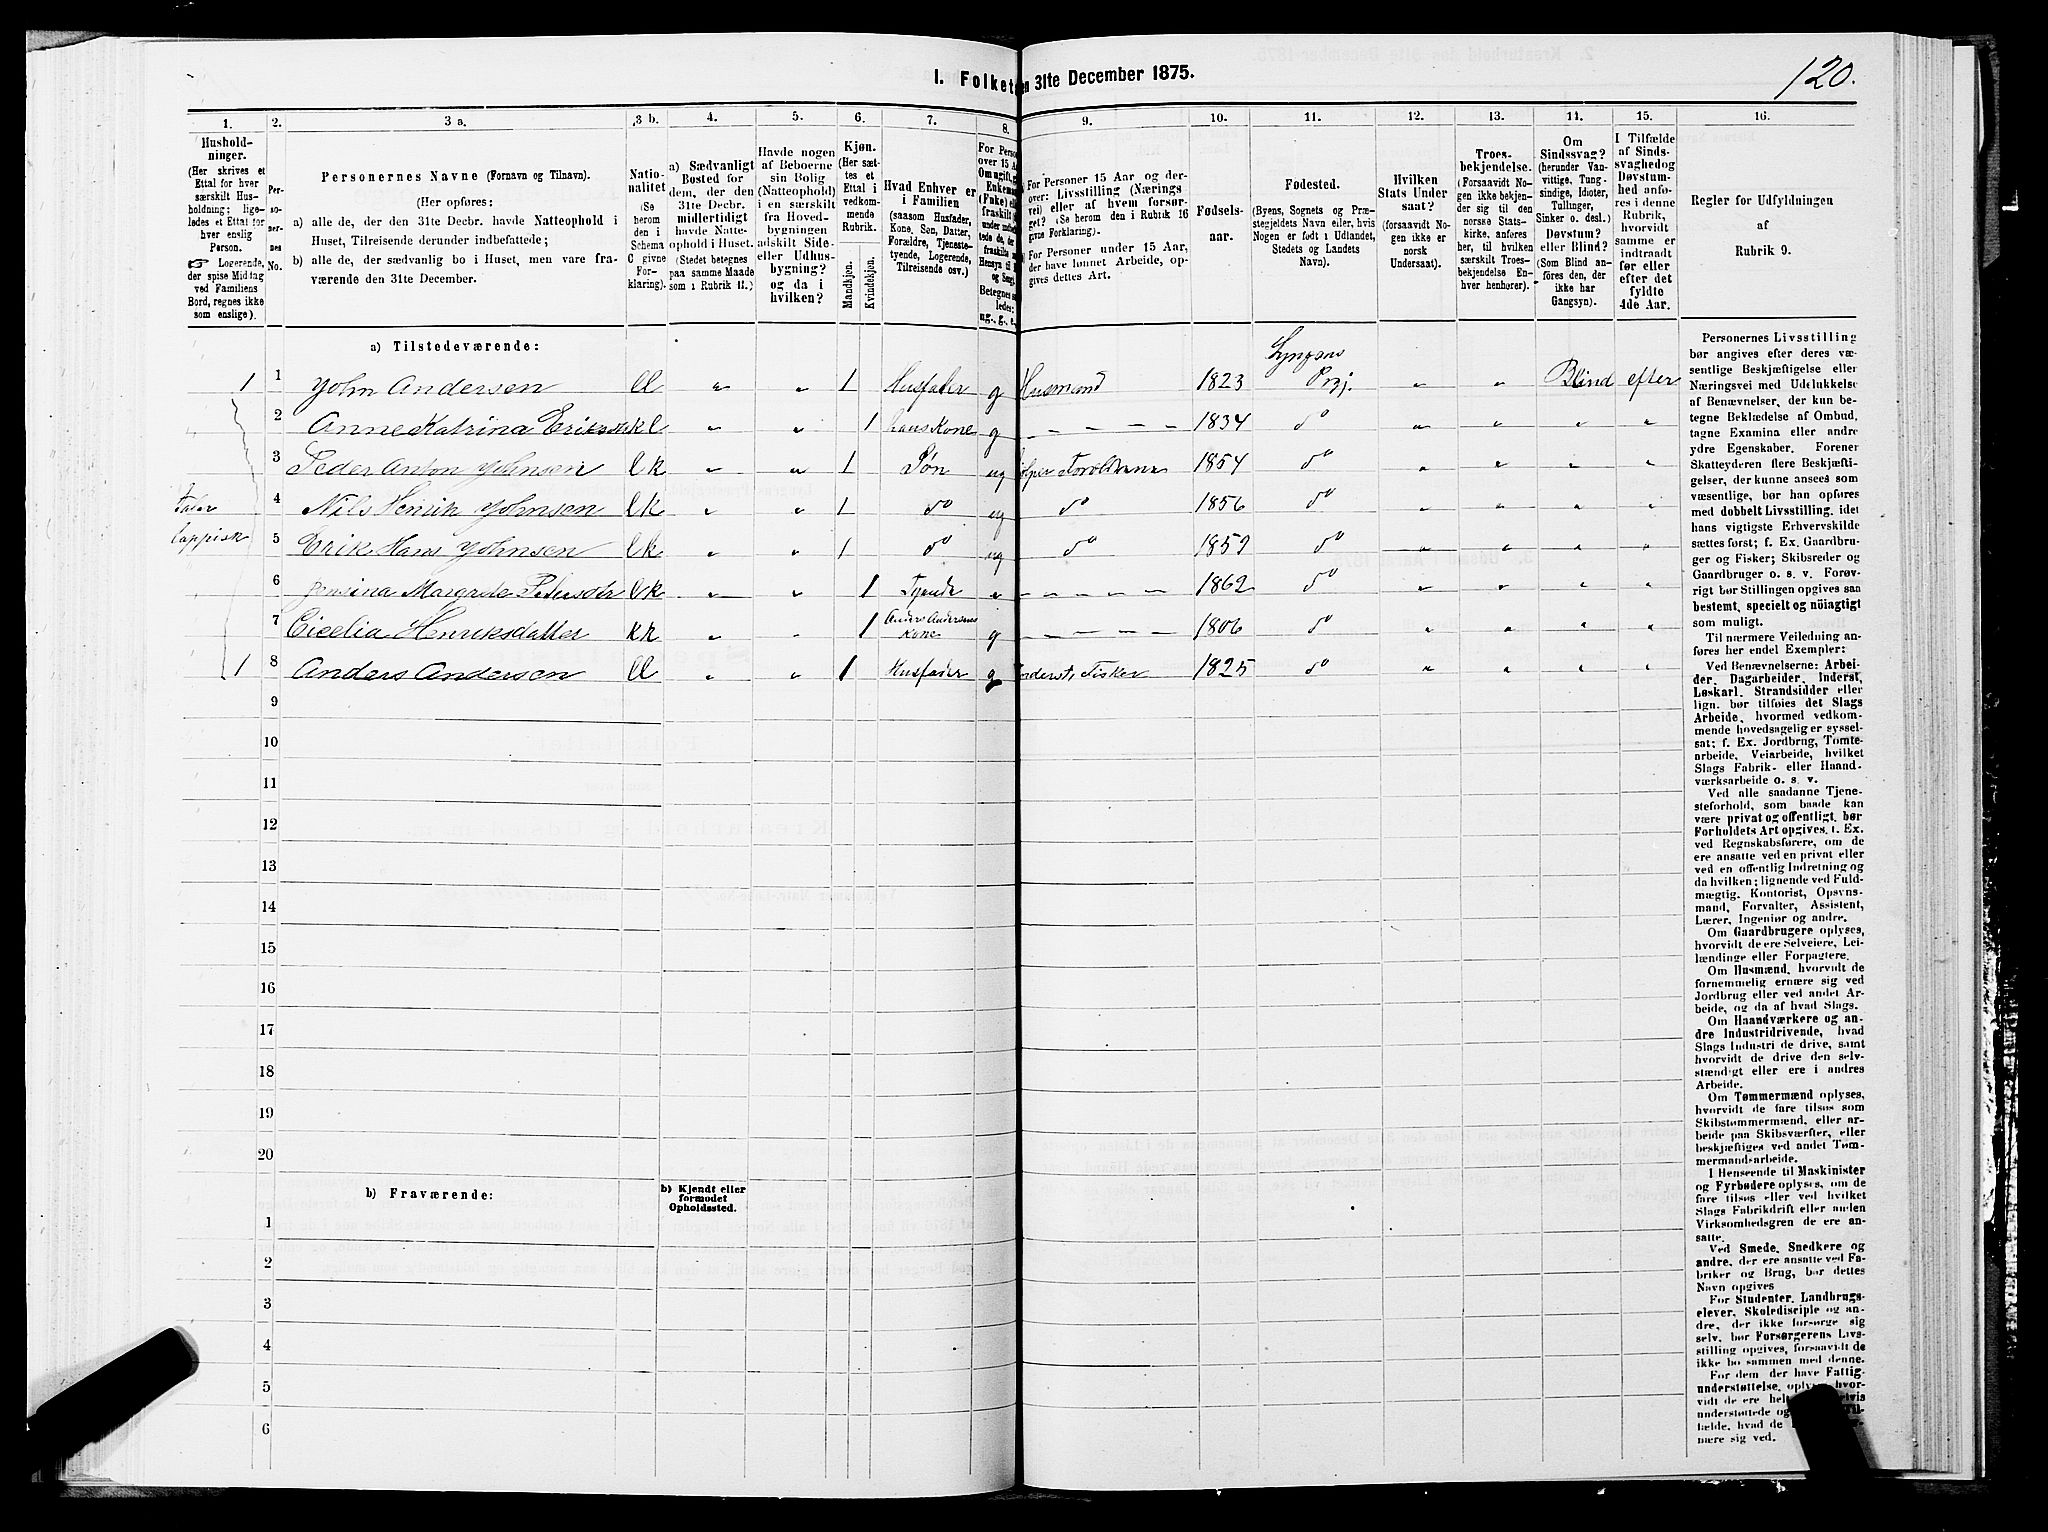 I. Folket en 31te December 1875.
120.
1.
Hushold-
ninger.
(Her skrives et
Ettal for hver
særskilt Hus-
holdning; lige-
ledes et Ettal for
hver enslig
Person.
Logerende,
der spise Middag
ved Familiens
Bord, regnes ikke
som enslige).
2.
3 a.
Personernes Navne (Fornavn og Tilnavn).
(Her opføres:
a) alle de, der den 31te Decbr. havde Natteophold i
Huset, Tilreisende derunder indbefattede;
b) alle de, der sædvanlig bo i Huset, men vare fra-
værende den 31te December.
3 b.
Natio-
nalitet
(Se
herom
den i
Schema
C givne
For-
klaring).
4.
a) Sædvanligt
Bosted for
dem, der den
31te Decbr.
midlertidigt
havde Natte-
ophold i Huset.
(Stedet betegnes
paa samme Maade
som i Rubrik 11.)
5.
Havde nogen
af Beboerne
sin Bolig
(Natteophold)
i en særskilt
fra Hoved-
bygningen
adskilt Side-
eller Udhus-
bygning?
og da i
hvilken?
6.
Kjøn.
(Her sæt-
tes et
Ettal i
vedkom-
mende
Rubrik.
Mandkjøn.
Kvindekjøn.
7.
Hvad Enhver er
i Familien
(saasom Husfader,
Kone, Søn, Datter,
Forældre, Tjeneste-
tyende, Logerende,
Tilreisende osv.)
8.
9.
For Personer 15 Aar og der-
over: Livsstilling (Nærings
vei) eller af hvem forsør-
get? (Se herom i Rubrik 16
givne Forklaring).
For Personer under 15 Aar,
der have lønnet Arbeide, op-
gives dettes Art.
10.
Fødsels-
aar.
11.
Fødested.
(Byens, Sognets og Præ-
stegjeldets Navn eller, hvis
Nogen er født i Udlandet,
Stedets og Landets
Navn).
12.
Hvilken
Stats Under
saat?
(forsaavidt No-
gen ikke er
norsk
Undersaat).
13.
Troes-
bekjendelse.
(Forsaavidt No-
gen ikke bekjen-
der sig til den
norske Stats-
kirke, anføres
her, til hvilken
særskilt Troes-
bekjendelse En-
hver henhører).
14.
Om
Sindssvag?
(herunder Van-
vittige, Tung-
sindige, Idioter,
Tullinger,
Sinker o. desl.)
Døvstum?
eller Blind?
(Som Blind an-
føres den, der
ikke har
Gangsyn).
15.
I Tilfælde
af Sinds-
svaghed og
Døvstum-
hed anfø-
res i denne
Rubrik,
hvorvidt
samme er
indtraadt
før eller
efter det
fyldte
4de Aar.
16.
Regler for Udfyldningen
af
Rubrik 9.
a) Tilstedeværende:
Lyngens
1 1 John Andersen ll " " 1 Husfader g Husmand 1823 Prgj. " " Blind efter
2 Anne Katrina kl " " 1 hans Kone g - - - - 1834 do " " " "
3 Peder Anton Johnsen lk " " 1 Søn ug Forældrene 1854 do " " " "
4 Nils Henrik Johnsen lk " " 1 do ug do 1856 do " " " "
lappisk
5 Erik Hans Johnsen lk " " 1 do ug do do " " " "
6 Margrete lk " " 1 Tyende " - - - - 1862 do " " " "
7 Cicelia Henriksdatter kk " " 1 Anders Andersens Kone g - - - - 1806 do " " " "
1 8 Anders Andersen ll " " 1 Husfader g Inderst, Fisker 1825 do " " " "
9
10
11
12
13
14
15
16
17
18
19
20
b) Fraværende:
b) Kjendt eller
formodet
Opholdssted.
1
2
3
4
5
6
Personernes Livsstilling
bør angives efter deres væ-
sentlige Beskjæftigelse eller
Næringsvei med Udelukkelse
af Benævnelser, der kun be-
tegne Beklædelse af Ombud,
tagne Examina eller andre
ydre Egenskaber. Forener
Skatteyderen flere Beskjæfti-
gelser, der kunne ansees som
væsentlige, bør han opføres
med dobbelt Livsstilling, idet
hans vigtigste Erhvervskilde
sættes først; f. Ex. Gaardbru-
ger og Fisker; Skibsreder og
Gaardbruger o. s. v. Forøv-
rigt bør Stillingen opgives saa
bestemt, specielt og nøiagtigt
som muligt.
Til nærmere Veiledning an-
føres her endel Exempler:
Ved Benævnelserne: Arbei-
der, Dagarbeider, Inderst,
Løskarl, Strandsidder eller
lign. bør tilføies det Slags
Arbeide, hvormed vedkom-
mende hovedsagelig er syssel-
sat; f. Ex. Jordbrug, Tomte-
arbeide, Veiarbeide, hvilket
Slags Fabrik- eller Haand-
værksarbeide o. s. v.
Ved alle saadanne Tjene-
steforhold, som baade kan
være privat og offentligt, bør
Forholdets Art opgives, f. Ex.
ved Regnskabsførere, om de
ere ansatte ved en privat eller
ved en offentlig Indretning og
da hvilken; lignende ved Fuld-
mægtig, Kontorist, Opsyns-
mand, Forvalter, Assistent,
Lærer, Ingeniør og andre.
Om Gaardbrugere oplyses,
hvorvidt de ere Selveiere, Lei-
lændinge eller Forpagtere.
Om Husmænd, hvorvidt de
fornemmelig ernære sig ved
Jordbrug eller ved andet Ar-
beide, og da af hvad Slags.
Om Haandværkere og an-
dre Industridrivende, hvad
Slags Industri de drive, samt
hvorvidt de drive den selv-
stændigt eller ere i andres
Arbeide.
Om Tømmermænd oplyses,
hvorvidt de fare tilsøs som
Skibstømmermænd, eller ar-
beide paa Skibsværfter, eller
beskjæftiges ved andet Tøm-
mermandsarbeide.
I Henseende til Maskinister
og Fyrbødere oplyses, om de
fare tilsøs eller ved hvilket
Slags Fabrikdrift eller anden
Virksomhedsgren de ere an-
satte.
Ved Smede, Snedkere og
andre, der ere ansatte ved Fa-
briker og Brug, bør dettes
Navn opgives
For Studenter, Landbrugs-
elever, Skoledisciple og an-
dre, der ikke forsørge sig
selv, bør Forsørgerens Livs-
stilling opgives, forsaavidt de
ikke bo sammen med denne.
For dem, der have Fattig-
understøttelse, oplyses, hvor-
vidt de ere
understøttede
hvad de
mere sig ved.